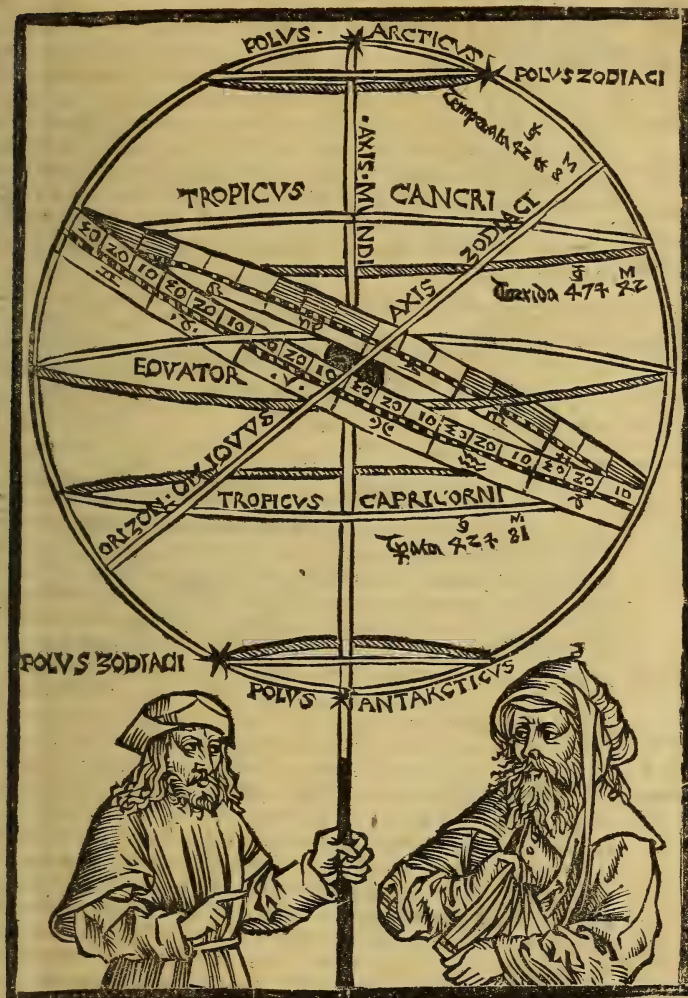 POLVS · ARCTICVS
POLVS ZODIACI
Temperata 42 ē 8
g M
· AXIS · MVNDI
TROPICVS CANCRI
AXIS ZODIACI
g M
Torrida 47ꝉ 22
30 20 10 30 20 10 30 20 10 30 20 10 30 20 10 30 20 10
EQVATOR
ORIZON · OBLIQVVS
TROPICVS CAPRICORNI
g M
42ꝉ 81
POLVS ZODIACI
POLVS ANTARCTICVS